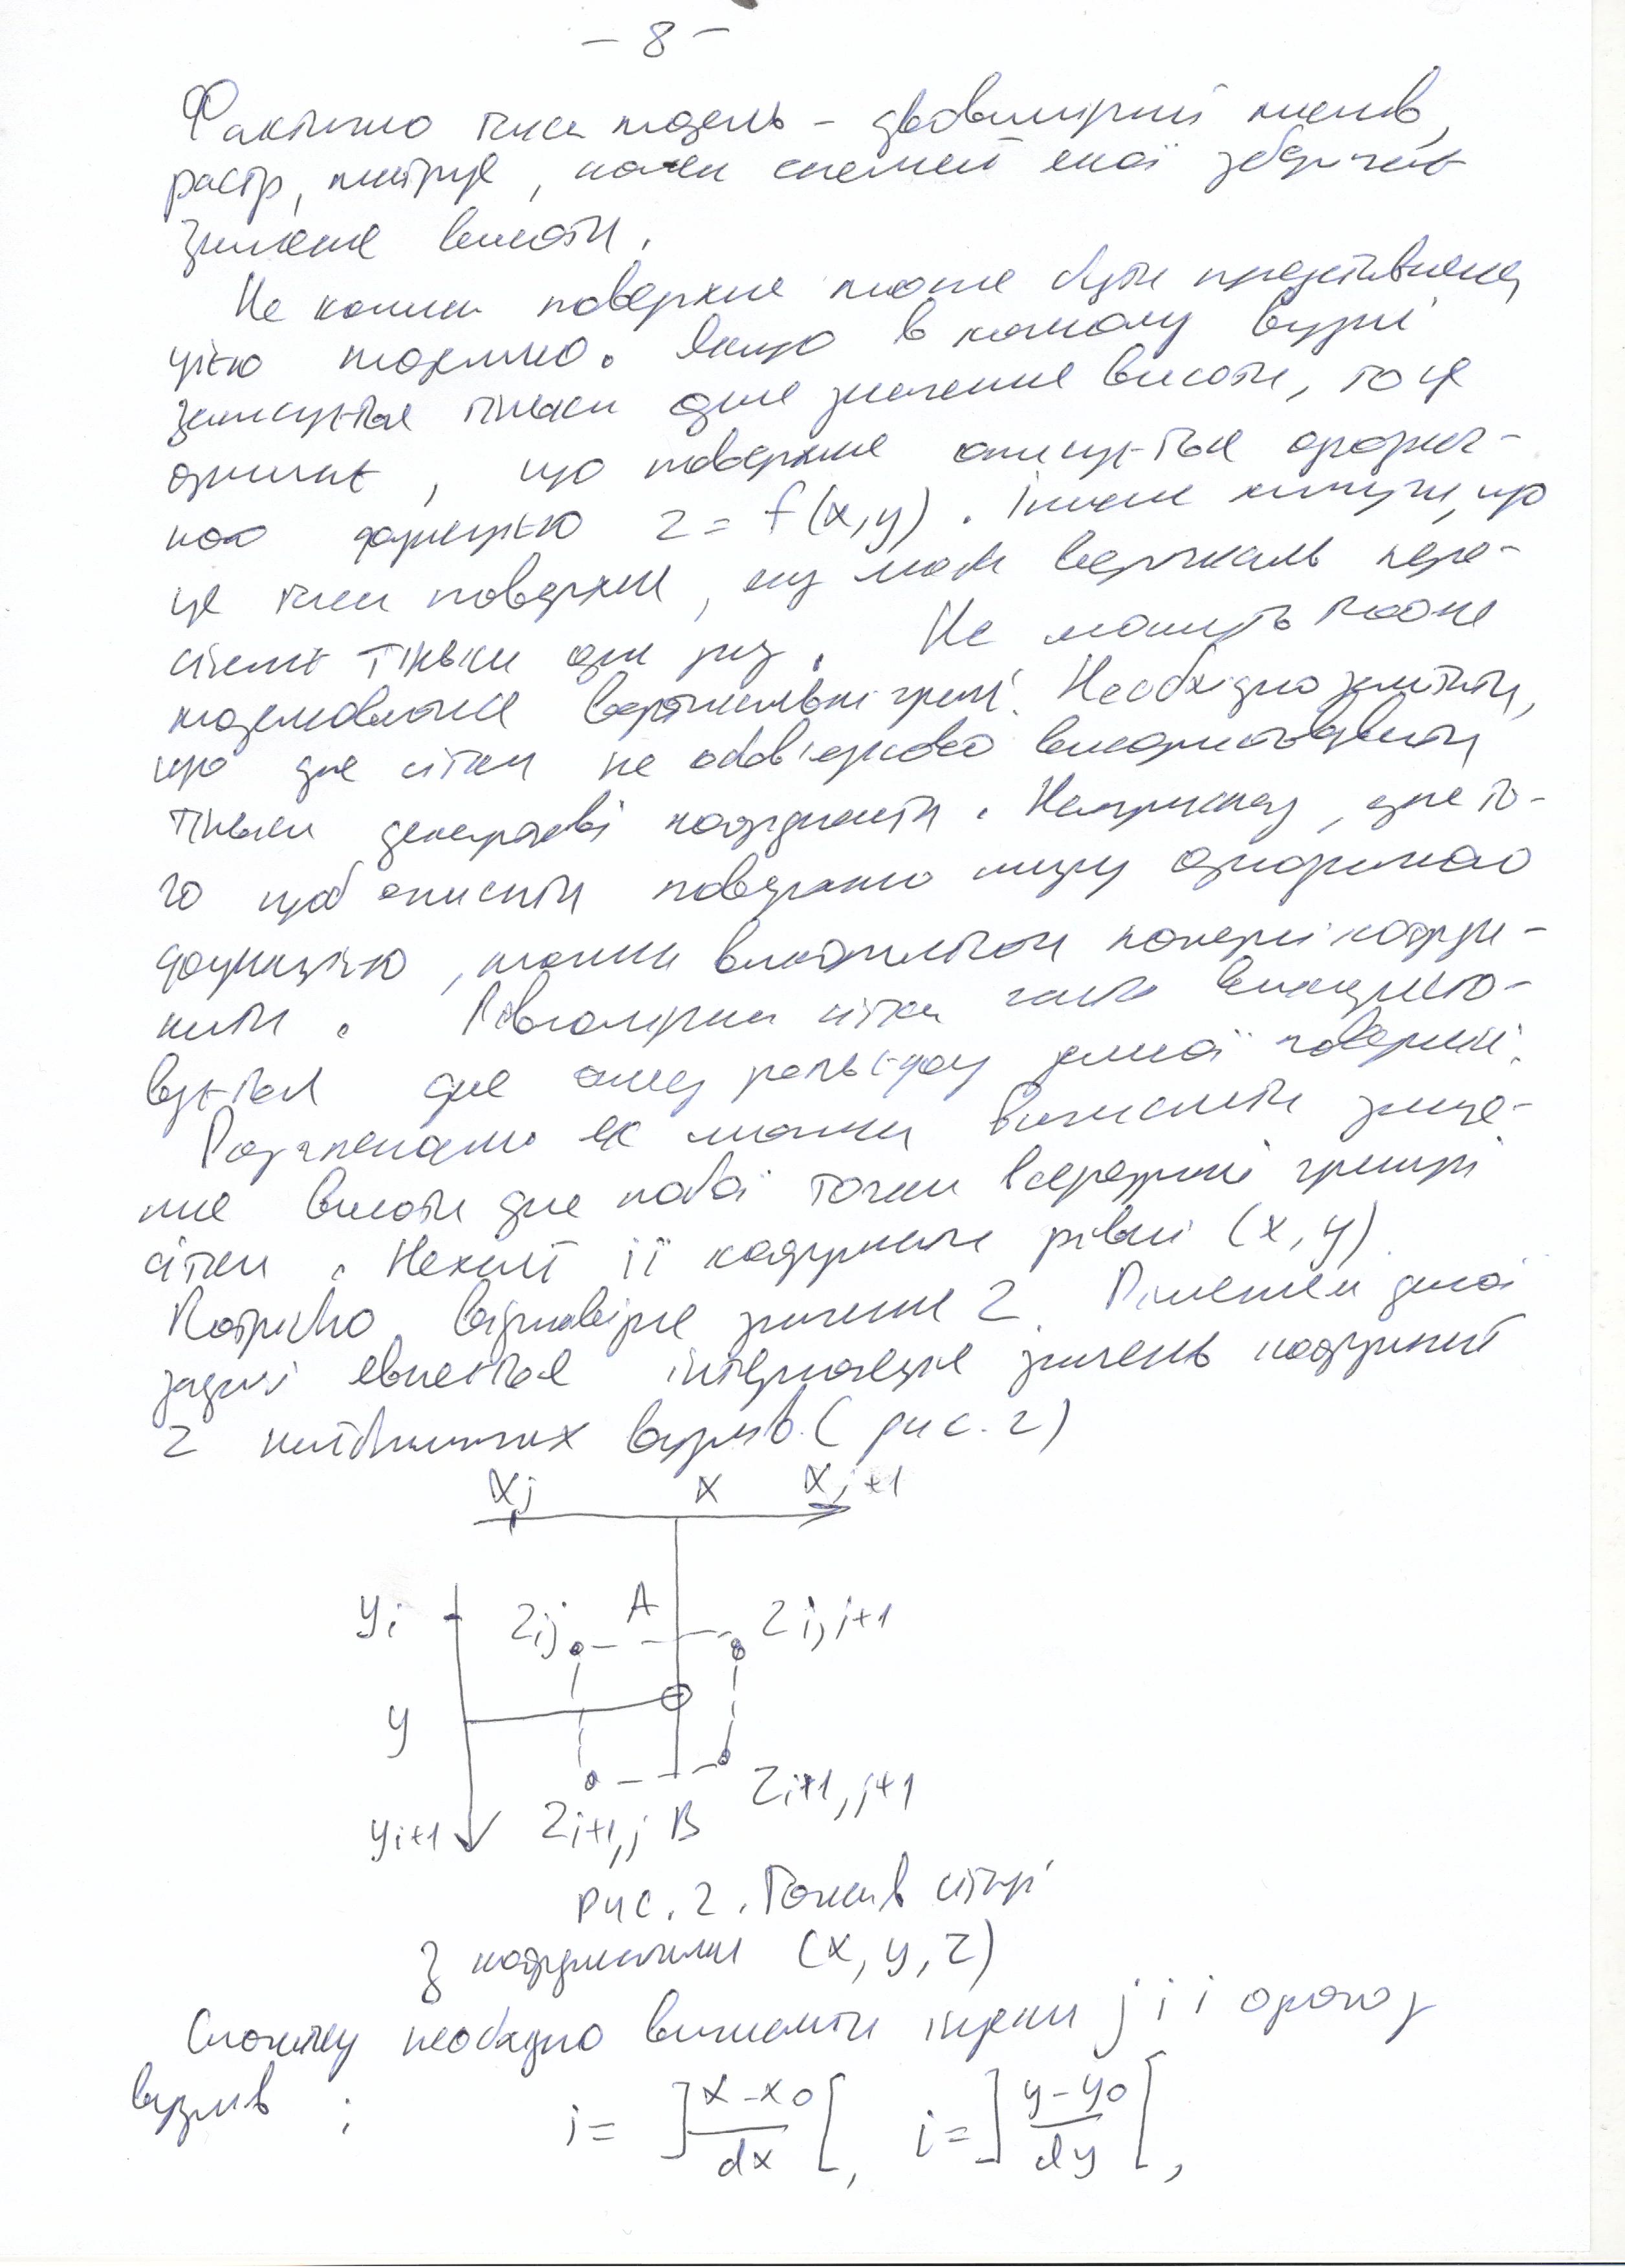 - 8 -
Фактично така модель - двовимірний масив,
растр, матриця, кожен елемент якої зберігає
значення висоти.
Не кожна поверхня може бути представлена
цією моделлю. Якщо в кожному вузлі
записується тільки одне значення висоти, то це
означає, що поверхня описується однознач-
ною функцією z = f(x,y). Інакше кажучи, що
це така поверхня, яку може вертикаль пере-
сікати тільки один раз. Не можуть також
моделюватися вертикальні грані. Необхідно замітити,
що для сітки не обов'язково використовувати
тільки декартові координати. Наприклад, для то-
го щоб описати поверхню шару однозначною
функцією, можна використати полярні коорди-
нати. Рівномірна сітка часто використо-
вується для опису рельєфу земної поверхні.
Розглянемо як можна вичислити значе-
ння висоти для любої точки всередині границі
сітки. Нехай її координати рівні (x, y).
Потрібно відповідне значення z. Рішенням даної
задачі являється інтерполяція значень координат
z найближчих вузлів. (рис. 2)
xj x xj+1
yi zij A zi,j+1
y
yi+1 zi+1,j B zi+1,j+1
рис. 2. Точка в сітці
з координатами (x, y, z)
Спочатку необхідно вичислити індекси j і i одного з
вузлів :
j = ]x-x0/dx[, i = ]y-y0/dy[,